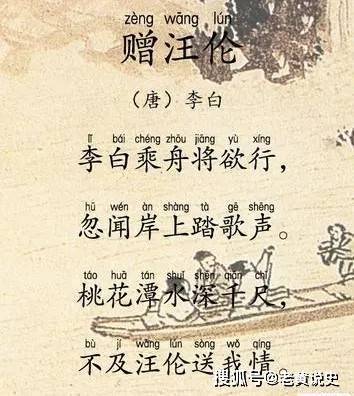 zèng wāng lún
赠汪伦
（唐）李白
lǐ bái chéng zhōu jiāng yù xíng
李白乘舟将欲行，
hū wén àn shàng tà gē shēng
忽闻岸上踏歌声。
táo huā tán shuǐ shēn qiān chǐ
桃花潭水深千尺，
bù jí wāng lún sòng wǒ qíng
不及汪伦送我情。
搜狐号@老黄说史